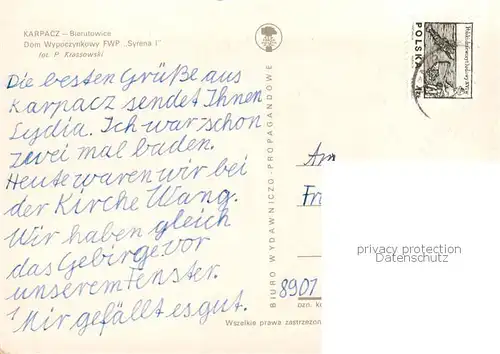 KARPACZ – Bierutowice
Dom Wypoczynkowy FWP „Syrena I"
fot. P. Krassowski
Die besten Grüße aus
Karpacz sendet Ihnen
Lydia. Ich war schon
zwei mal baden.
Heute waren wir bei
der Kirche Wang.
Wir haben gleich
das Gebirge vor
unserem Fenster.
Mir gefällt es gut.
BIURO WYDAWNICZO-PROPAGANDOWE
POLSKA
Am
Fri
privacy protection
Datenschutz
8901
ozn. k
Wszelkie prawa zastrzeżon